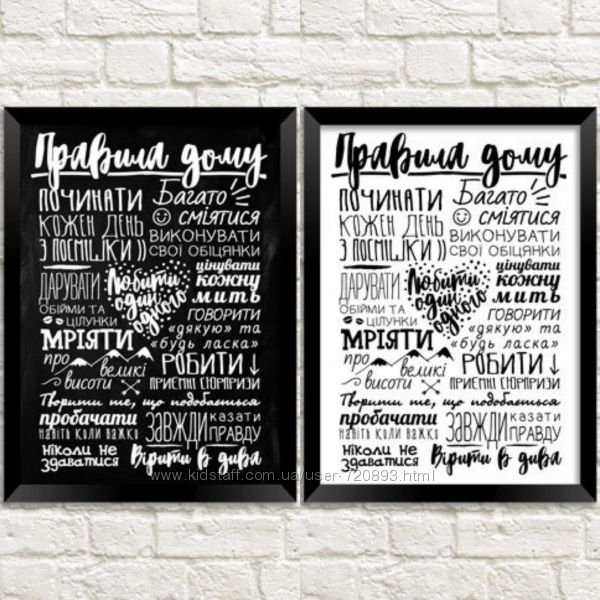 Правила дому
ПОЧИНАТИ
КОЖЕН ДЕНЬ
З ПОСМІШКИ ))
Багато
СМІЯТИСЯ
ВИКОНУВАТИ
СВОЇ ОБІЦЯНКИ
ДАРУВАТИ
ОБІЙМИ ТА
ЦІЛУНКИ
Любити
один
одного
цінувати
кожну
мить
ГОВОРИТИ
«ДЯКУЮ» ТА
«БУДЬ ЛАСКА»
МРІЯТИ
про
великі
висоти
РОБИТИ
ПРИЄМНІ СЮРПРИЗИ
Творити те, що подобається
пробачати
НАВІТЬ КОЛИ ВАЖКО
ЗАВЖДИ
КАЗАТИ
ПРАВДУ
НІКОЛИ НЕ
ЗДАВАТИСЯ
Вірити в дива
Правила дому
ПОЧИНАТИ
КОЖЕН ДЕНЬ
З ПОСМІШКИ ))
Багато
СМІЯТИСЯ
ВИКОНУВАТИ
СВОЇ ОБІЦЯНКИ
ДАРУВАТИ
ОБІЙМИ ТА
ЦІЛУНКИ
Любити
один
одного
цінувати
кожну
мить
ГОВОРИТИ
«ДЯКУЮ» ТА
«БУДЬ ЛАСКА»
МРІЯТИ
про
великі
висоти
РОБИТИ
ПРИЄМНІ СЮРПРИЗИ
Творити те, що подобається
пробачати
НАВІТЬ КОЛИ ВАЖКО
ЗАВЖДИ
КАЗАТИ
ПРАВДУ
НІКОЛИ НЕ
ЗДАВАТИСЯ
Вірити в дива
www.kidstaff.com.uayuser-720893.html